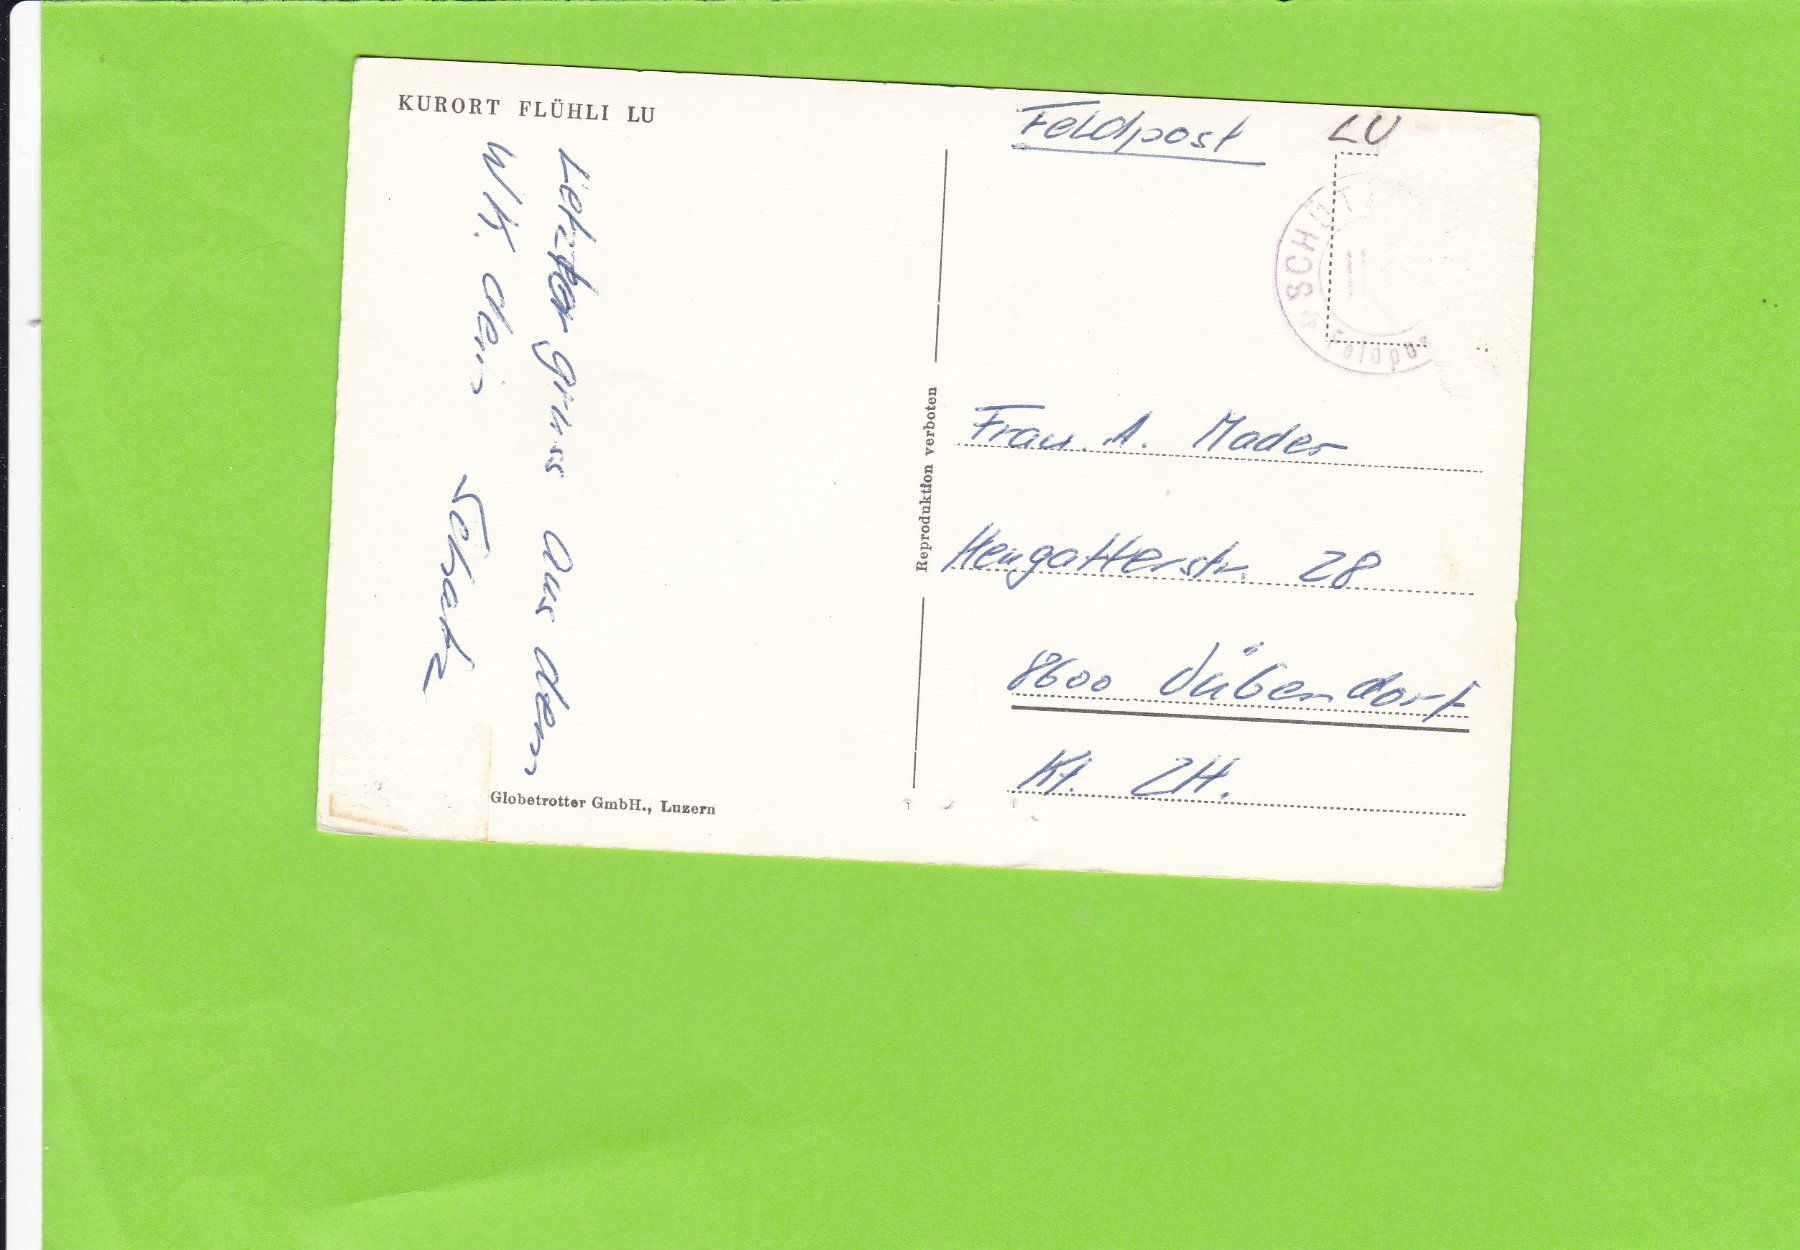 KURORT FLÜHLI LU
Letzter gruss aus dem
WK. dein Schatz
Globetrotter GmbH., Luzern
Reproduktion verboten
Feldpost LU
* SCHÜ
Feldpos
Frau. A. Mader
Heugatterstr. 28
8600 Dübendorf
Kt. ZH.